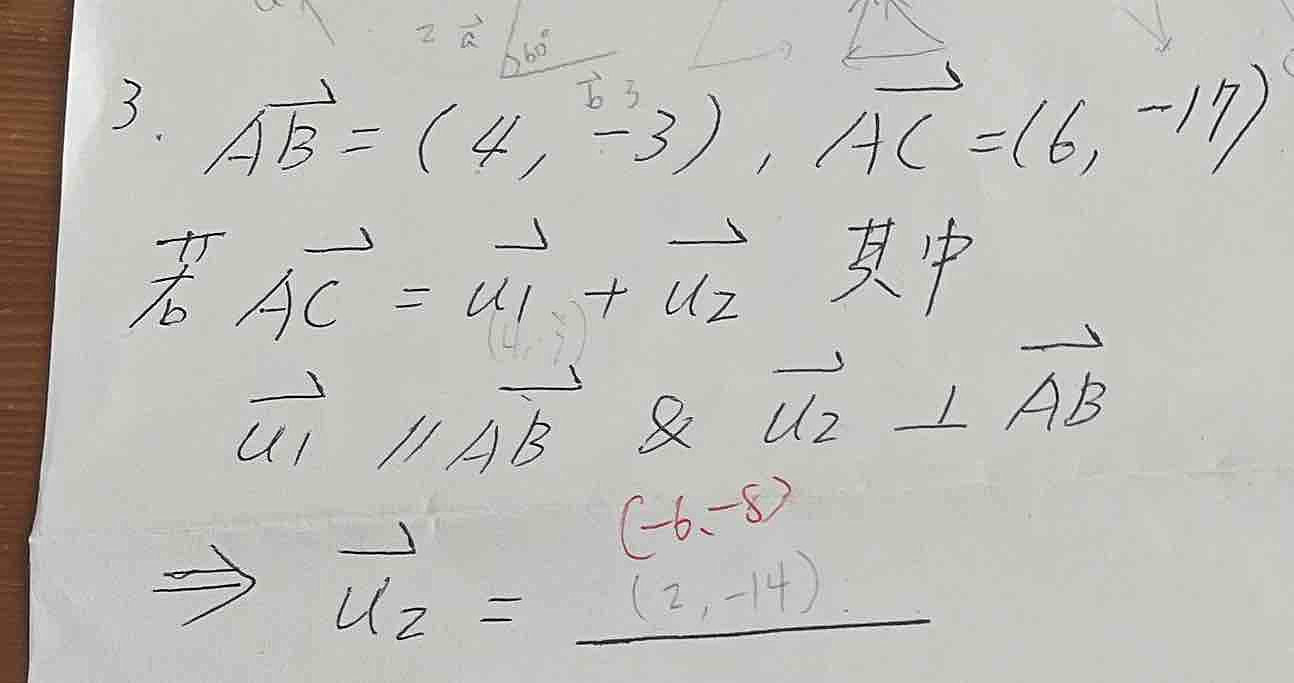 2 a⃗ 60°
b⃗ 3
3. \overrightarrow{AB} = (4, -3), \overrightarrow{AC} = (6, -17)
若 \overrightarrow{AC} = \overrightarrow{u_1} + \overrightarrow{u_2} 其中
(4, -3)
\overrightarrow{u_1} // \overrightarrow{AB} & \overrightarrow{u_2} ⊥ \overrightarrow{AB}
(-6, -8)
⇒ \overrightarrow{u_2} = (2, -14)